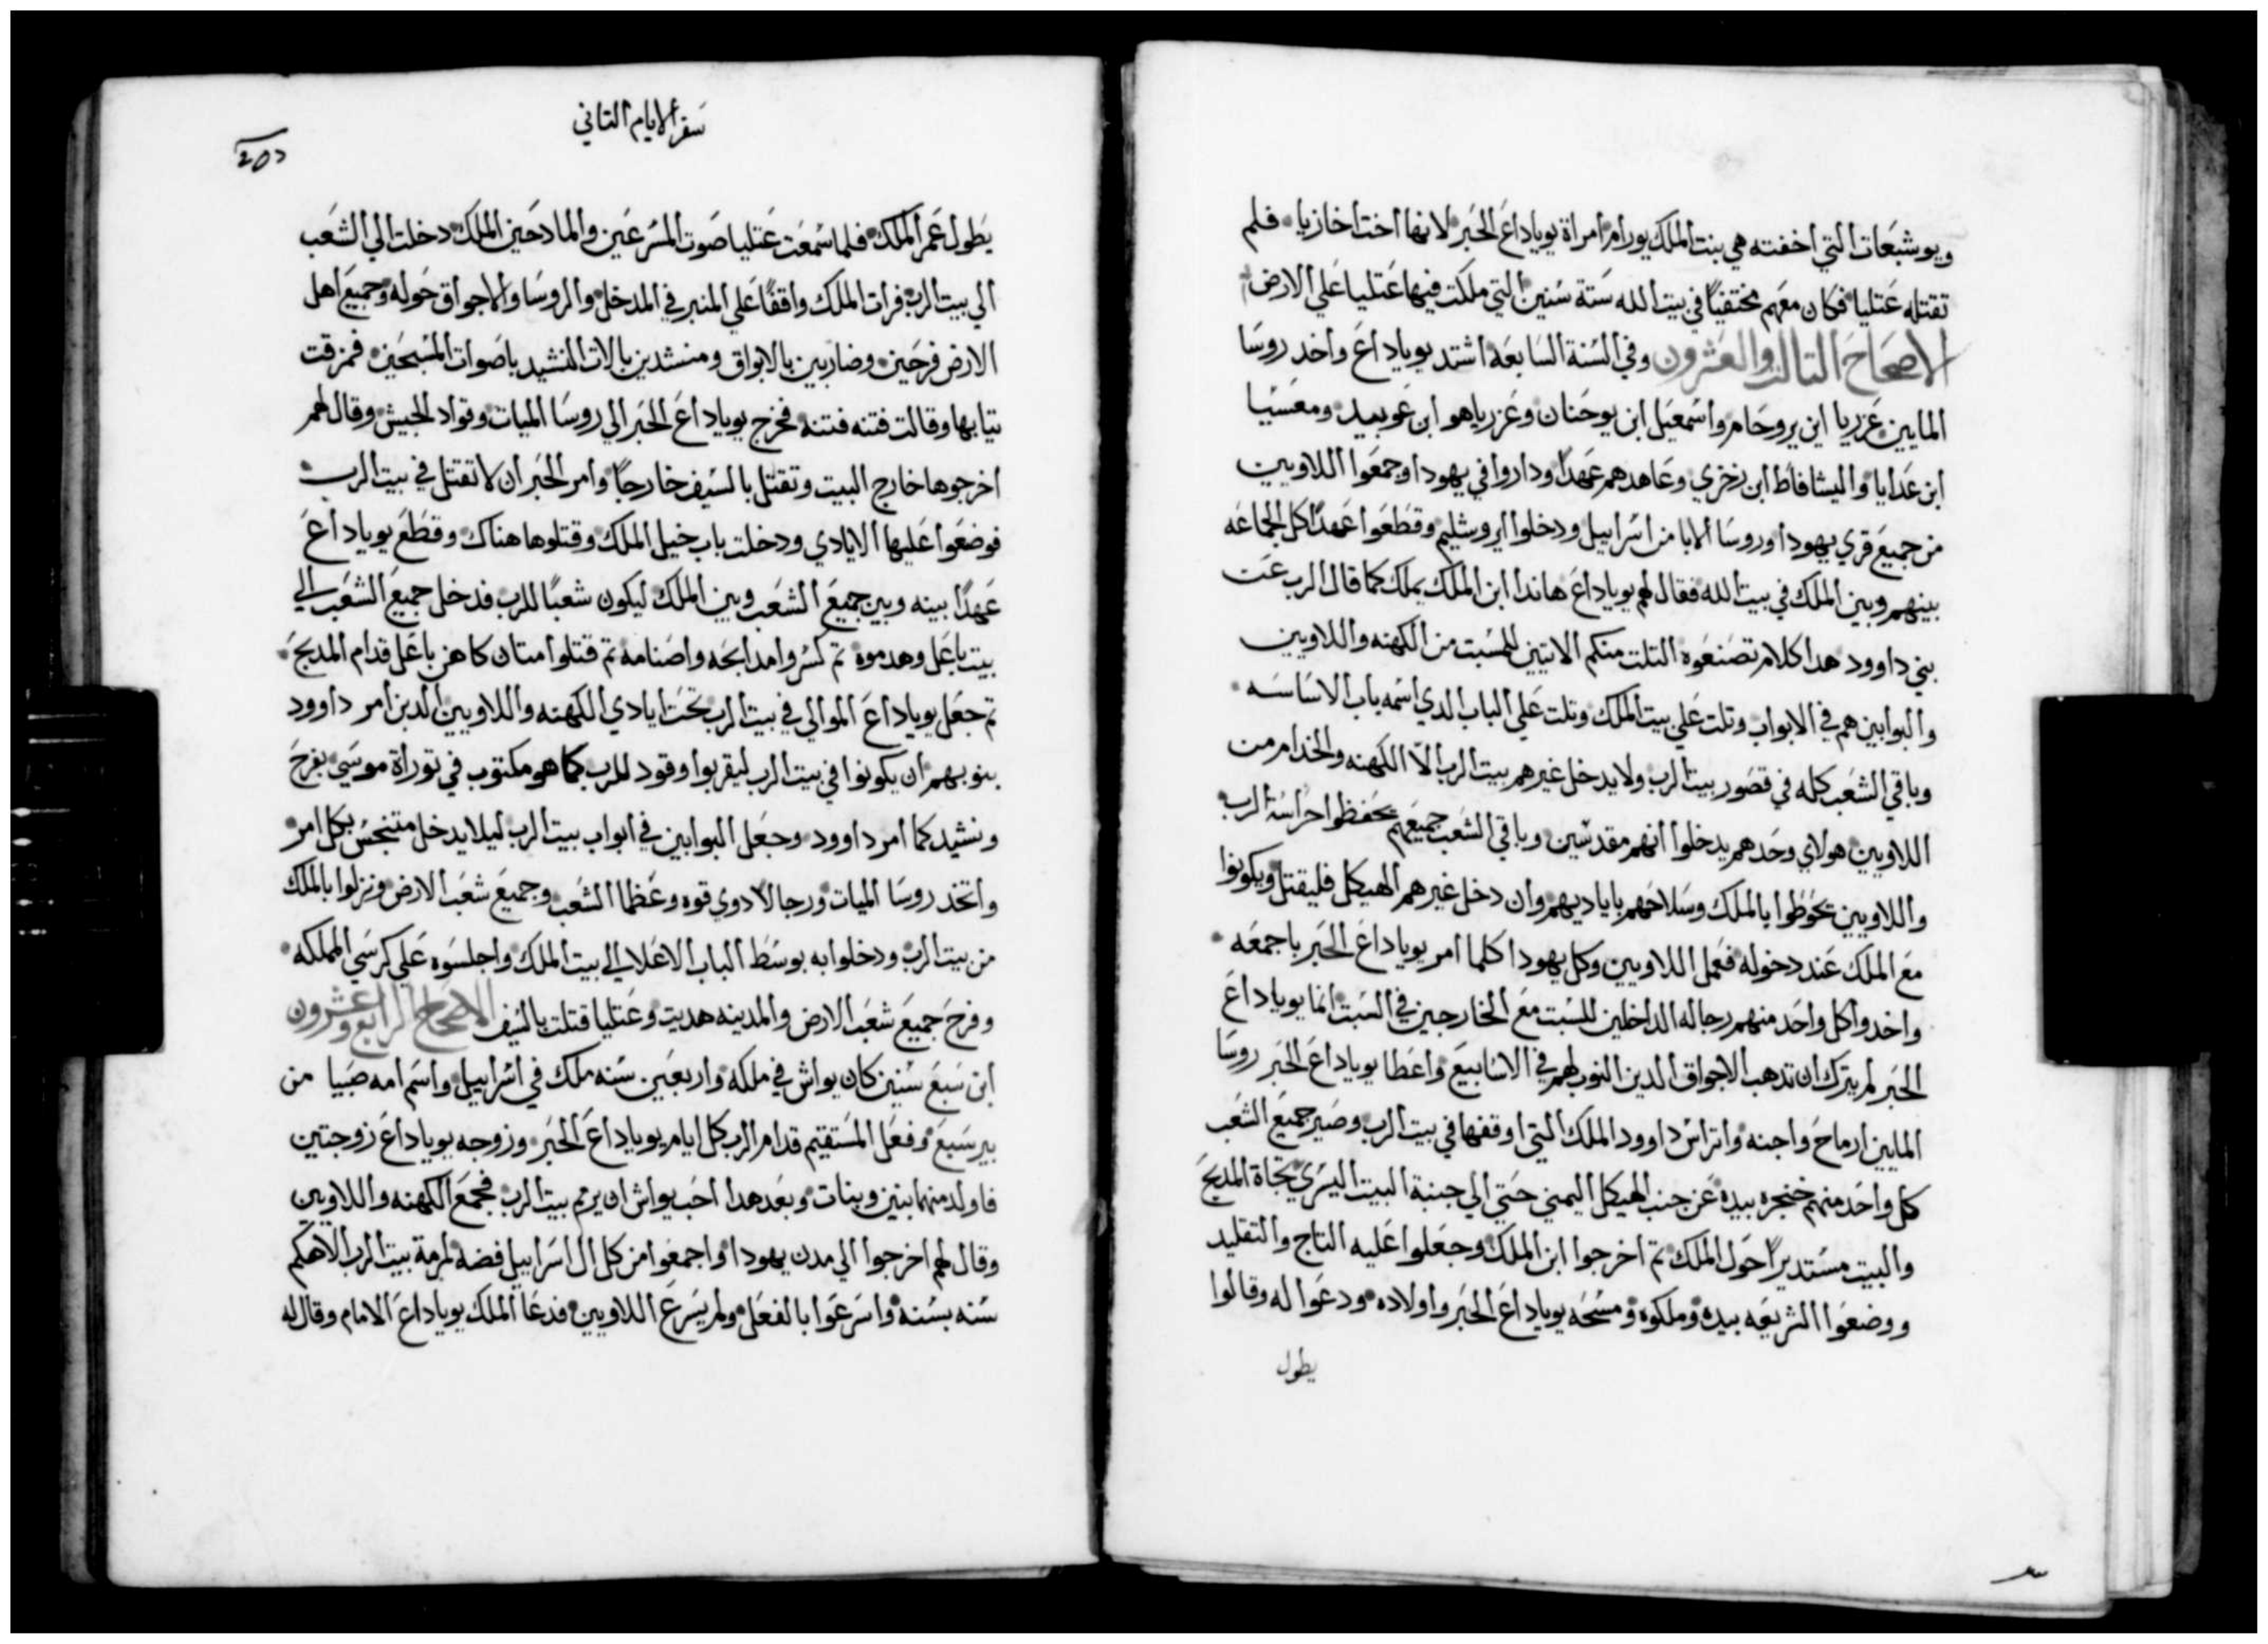 ويوشبعات التي اخفته هي بنت الملك يورام امراة يوياداع الحبر لانها اخت اخازيا فلم
تقتله عتليا فكان معهم مختفيًا في بيت الله ستة سنين التي ملكت فيها عتليا علي الارض
الاصحاح التالت والعشرون وفي السنة السابعه اشتد يوياداع واخد روسا
المايين عزريا ابن يروحام واسمعيل ابن يوحنان وعزرياهو ابن عوبيد ومعسيا
ابن عدايا واليشافاط ابن زخري وعاهدهم عهدًا وداروا في يهودا وجمعوا اللاويين
من جميع قري يهودا وروسا الابا من اسراييل ودخلوا ايروشليم وقطعوا عهدًا كل الجماعه
بينهم وبين الملك في بيت الله فقال لهم يوياداع هاندا ابن الملك يملك كما قال الرب عن
بني داوود هدا كلام تصنعوه التلت منكم الاتيين للسبت من الكهنه واللاويين
والبوابين هم في الابواب وتلت علي بيت الملك وتلت علي الباب الدي اسمه باب الاساسه
وباقي الشعب كله في قصور بيت الرب ولا يدخل غيرهم بيت الرب الّا الكهنه والخدام من
اللاويين هولاي وحدهم يدخلوا انهم مقدسين وباقي الشعب جميعهم يحفظوا حراسة الرب
واللاويين يحوطوا بالملك وسلاحهم باياديهم وان دخل غيرهم الهيكل فليقتل ويكونوا
مع الملك عند دخوله فعمل اللاويين وكل يهودا كلما امر يوياداع الحبر باجمعه
واخدوا كل واحد منهم رجاله الداخلين للسبت مع الخارجين في السبت انما يوياداع
الحبر لم يترك ان تدهب الاجواق الدين النوب لهم في الاسابيع واعطا يوياداع الحبر روسا
المايين ارماح واجنه واتراس داوود الملك التي اوقفها في بيت الرب وصير جميع الشعب
كل واحد منهم خنجره بيده عن جنب الهيكل اليمني حتي الي جنبة البيت اليسري تجاة المدبح
والبيت مستديرًا حول الملك تم اخرجوا ابن الملك وجعلوا عليه التاج والتقليد
ووضعوا الشريعه بيده وملكوه ومسحه يوياداع الحبر واولاده ودعوا له وقالوا
يطول
سفر الايام التاني
يطول عمر الملك فلما سمعت عتليا صوت المسرعين والمادحين الملك دخلت الي الشعب
الي بيت الرب فرات الملك واقفًا علي المنبر في المدخل والروسا والاجواق حوله وجميع اهل
الارض فرحين وضاربين بالابواق ومنشدين بالات النشيد باصوات المسبحين فمزقت
تيابها وقالت فتنه فتنه فخرج يوياداع الحبر الي روسا الميات وقواد الجيش وقال لهم
اخرجوها خارج البيت وتقتل بالسيف خارجًا وامر الحبر ان لا تقتل في بيت الرب
فوضعوا عليها الايادي ودخلت باب خيل الملك وقتلوها هناك وقطع يوياداع
عهدًا بينه وبين جميع الشعب وبين الملك ليكون شعبًا للرب فدخل جميع الشعب الي
بيت باعل وهدموه تم كسروا مدابحه واصنامه تم قتلوا متان كاهن باعل قدام المدبح
تم جعل يوياداع الموالي في بيت الرب تحت ايادي الكهنه واللاويين الدين امر داوود
بنوبهم ان يكونوا في بيت الرب ليقربوا وقود للرب كما هو مكتوب في توراة موسي بفرح
ونشيد كما امر داوود وجعل البوابين في ابواب بيت الرب ليلا يدخل متنجس بكل امر
واتخد روسا الميات ورجالًا دوي قوه وعظما الشعب وجميع شعب الارض ونزلوا بالملك
من بيت الرب ودخلوا به بوسط الباب الاعلا الي بيت الملك واجلسوه علي كرسي المملكه
وفرح جميع شعب الارض والمدينه هديت وعتليا قتلت بالسيف الاصحاح الرابع وعشرون
ابن سبع سنين كان يواش في ملكه واربعين سنه ملك في اسراييل واسم امه صبيا من
بيرسبع وفعل المستقيم قدام الرب كل ايام يوياداع الحبر وزوجه يوياداع زوجتين
فاولد منهما بنين وبنات وبعد هدا احب يواش ان يرمم بيت الرب فجمع الكهنه واللاويين
وقال لهم اخرجوا الي مدن يهودا واجمعوا من كل ال اسراييل فضه لمرمة بيت الرب الاهكم
سنه بسنه واسرعوا بالفعل ولم يسرع اللاويين فدعا الملك يوياداع الامام وقال له